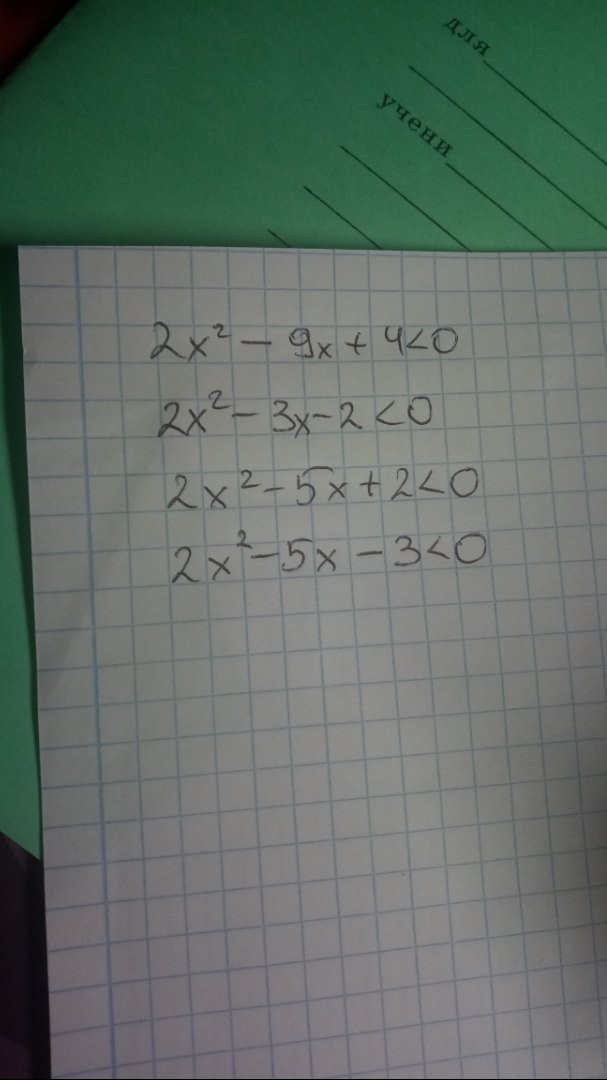 для
учени
2x² - 9x + 4<0
2x² - 3x - 2 <0
2x² - 5x + 2<0
2x² - 5x - 3<0